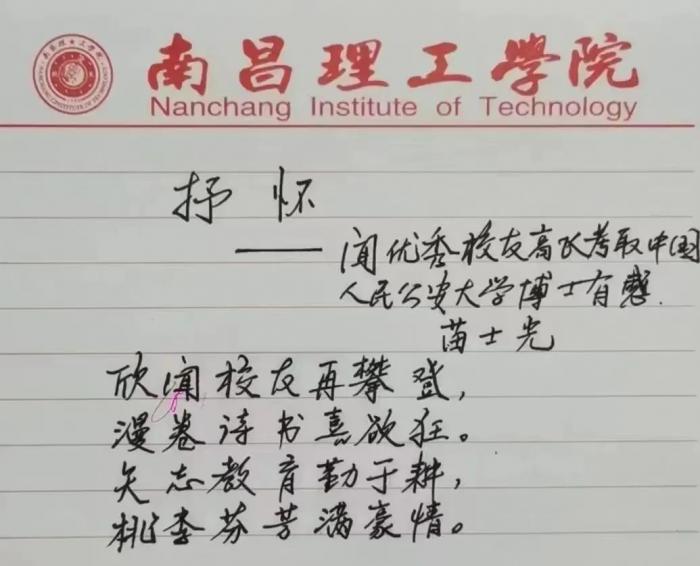 南昌理工學院
Nanchang Institute of Technology
抒 怀
——闻优秀校友高飞考取中国
人民公安大学博士有感.
苗士光
欣闻校友再攀登，
漫卷诗书喜欲狂。
矢志教育勤于耕，
桃李芬芳满豪情。